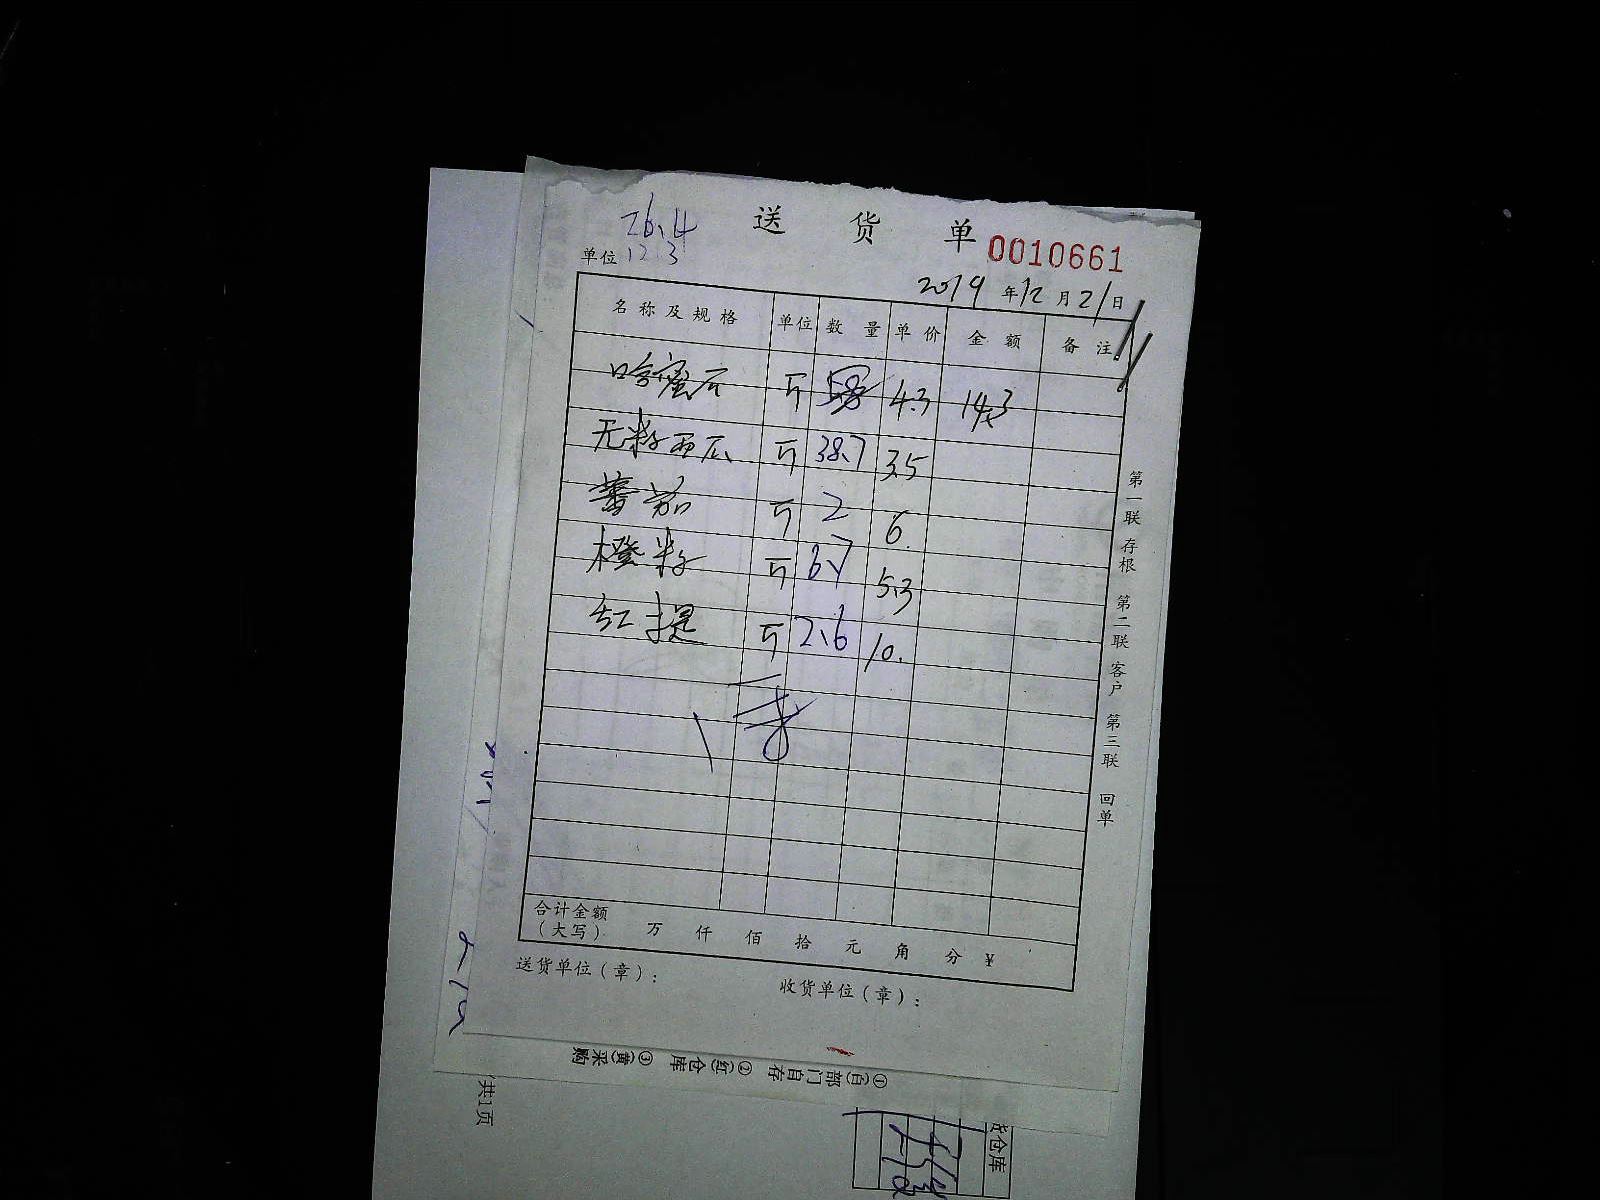 26.4
送货单 0010661
单位 12.3
2019年12月21日
名称及规格 单位 数量 单价 金额 备注
哈蜜瓜 斤 4.3 14.3
无籽西瓜 斤 38.7 3.5
蕃茄 斤 2 6.
橙籽 斤 6.7 5.3
红提 斤 2.6 10.
合计金额(大写) 万 仟 佰 拾 元 角 分 ¥
送货单位(章): 收货单位(章):
第一联 存根 第二联 客户 第三联 回单
①(白)部门自存 ②(红)仓库 ③(黄)采购
共1页
仓库